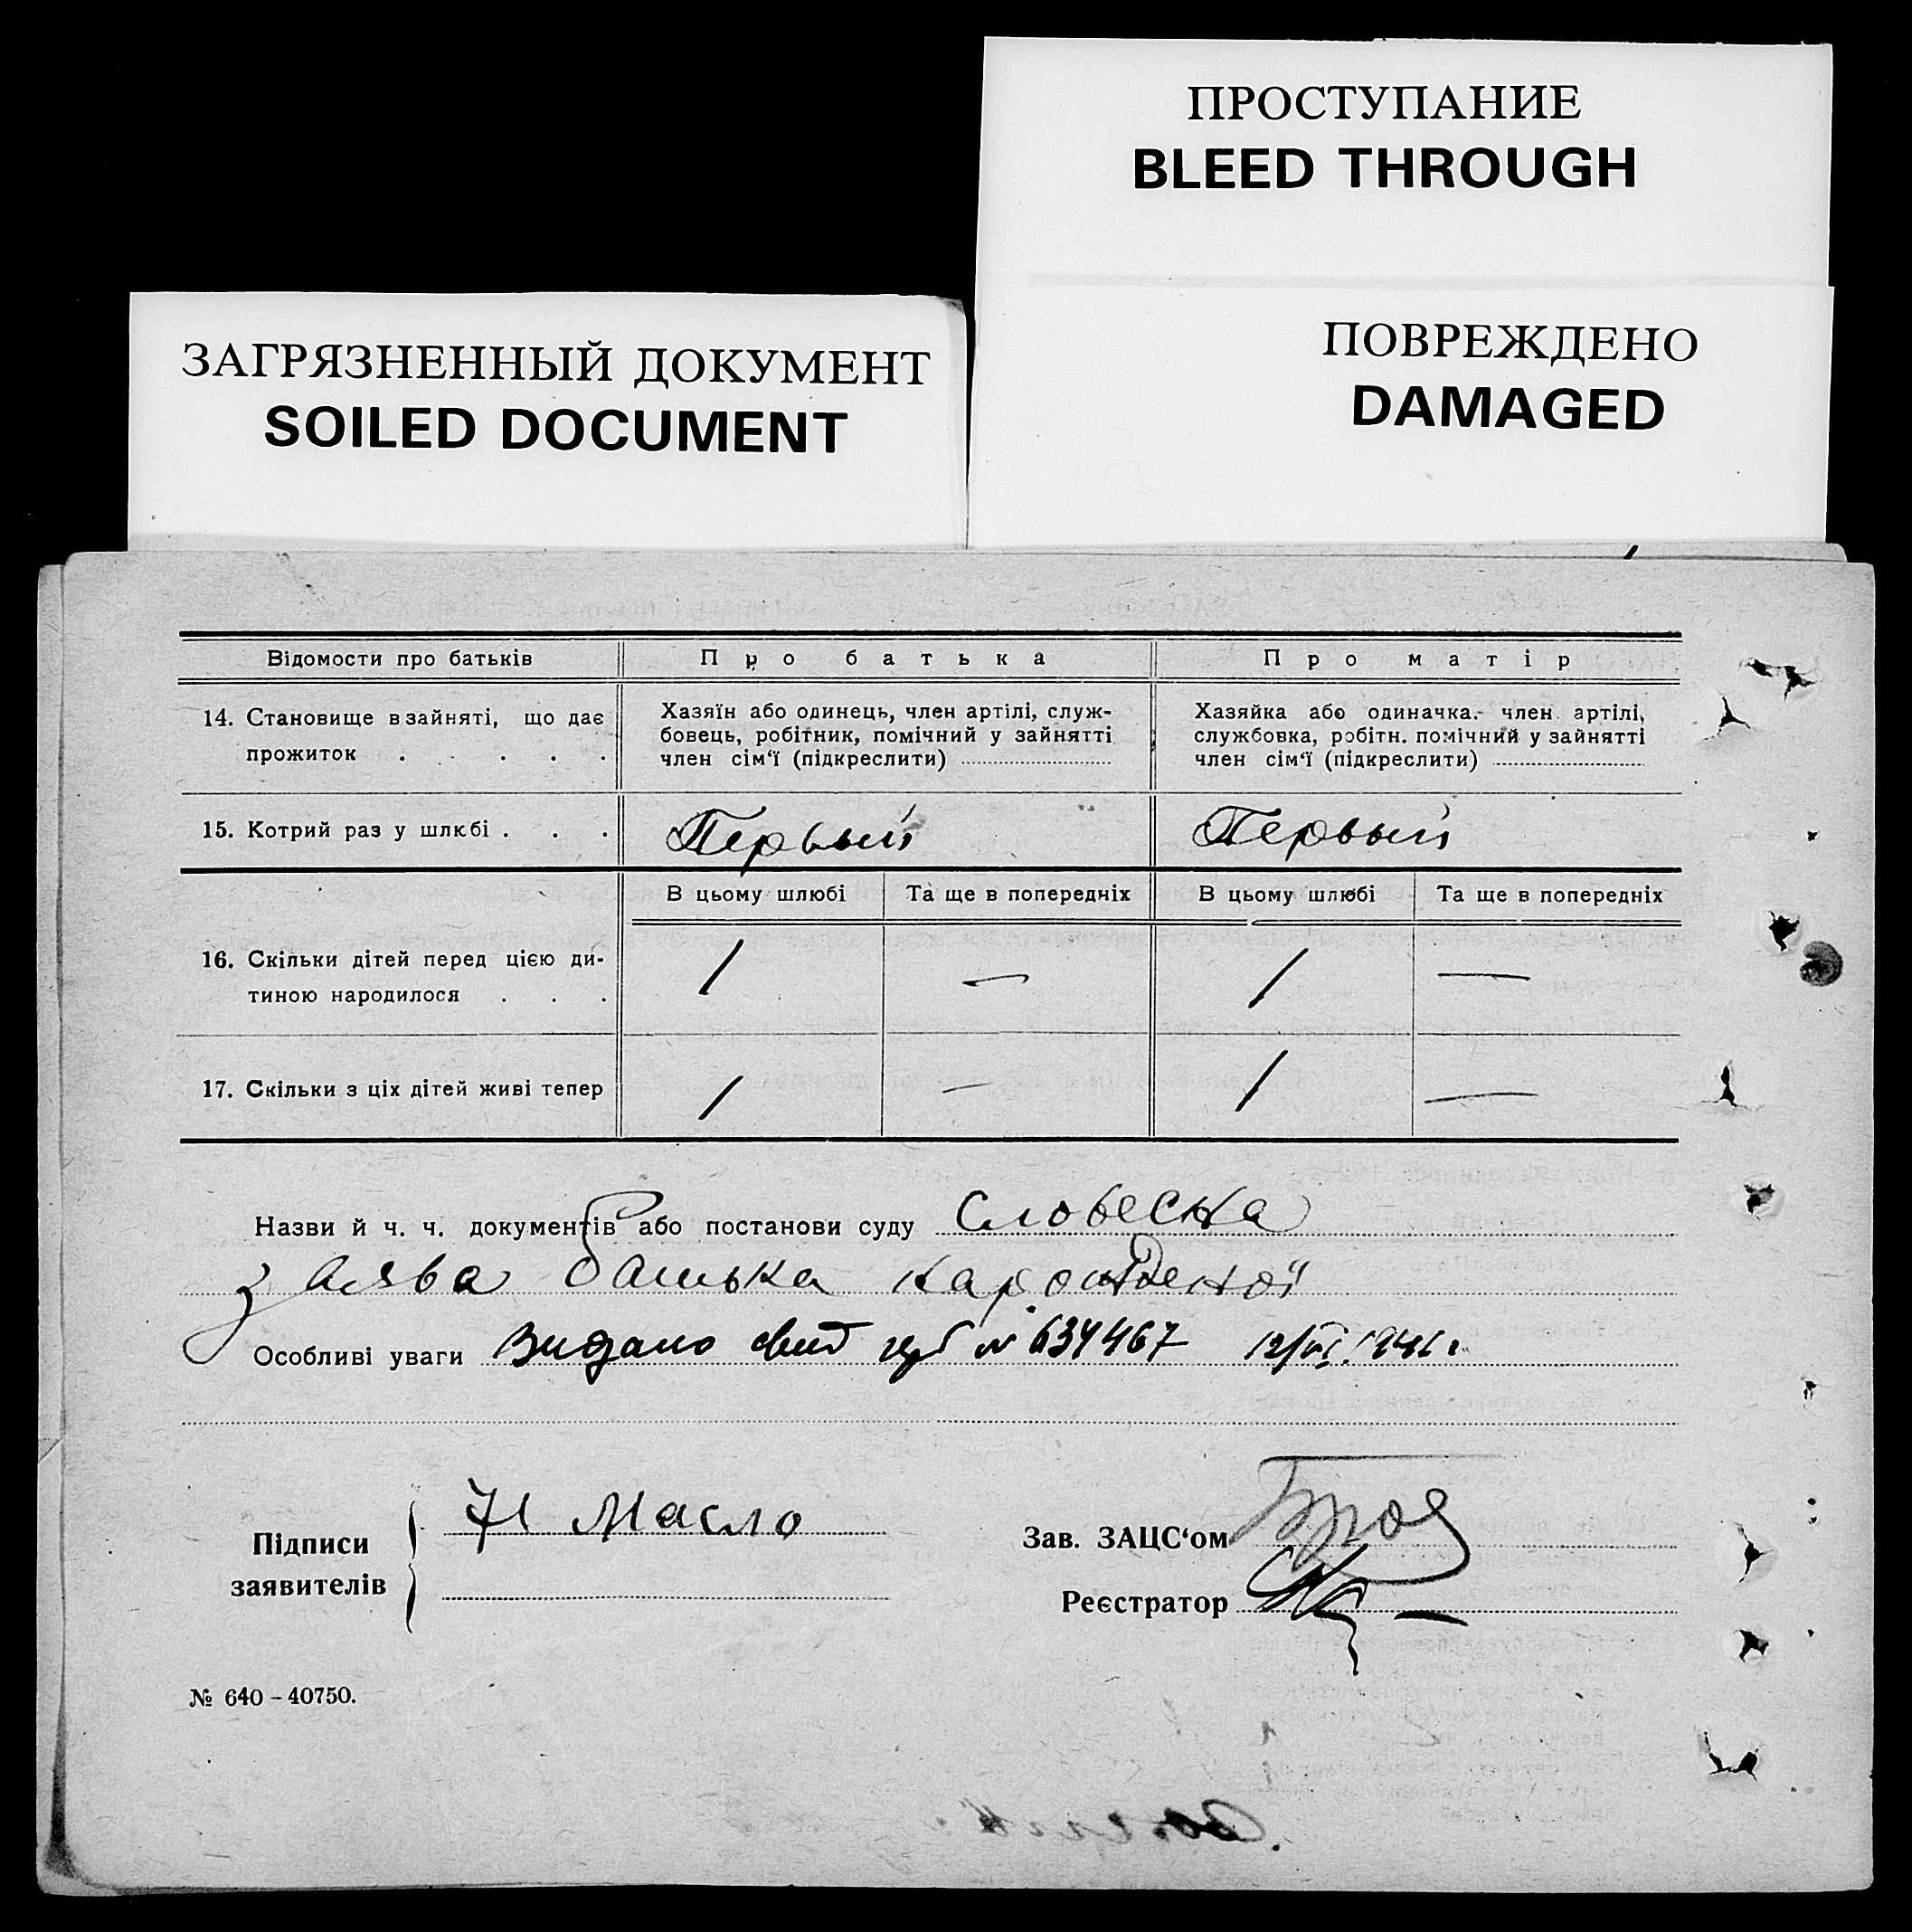 ПРОСТУПАНИЕ
BLEED THROUGH
ЗАГРЯЗНЕННЫЙ ДОКУМЕНТ
SOILED DOCUMENT
ПОВРЕЖДЕНО
DAMAGED
Відомости про батьків Про батька Про матір
14. Становище в зайняті, що дає
прожиток . . . .
Хазяїн або одинець, член артілі, служ-
бовець, робітник, помічний у зайнятті
член сім'ї (підкреслити)
Хазяйка або одиначка.- член артілі,
службовка, робітн. помічний у зайнятті
член сім'ї (підкреслити)
15. Котрий раз у шлюбі . . . Первый Первый
В цьому шлюбі Та ще в попередніх В цьому шлюбі Та ще в попередніх
16. Скільки дітей перед цією ди-
тиною народилося . . .
1 — 1 —
17. Скільки з ціх дітей живі тепер 1 — 1 —
Назви й ч. ч. документів або постанови суду Словесна
заява батька народженої
Особливі уваги Видано свид № 634467
Підписи
заявителів
Масло
Зав. ЗАЦС'ом
Реєстратор
№ 640 – 40750.